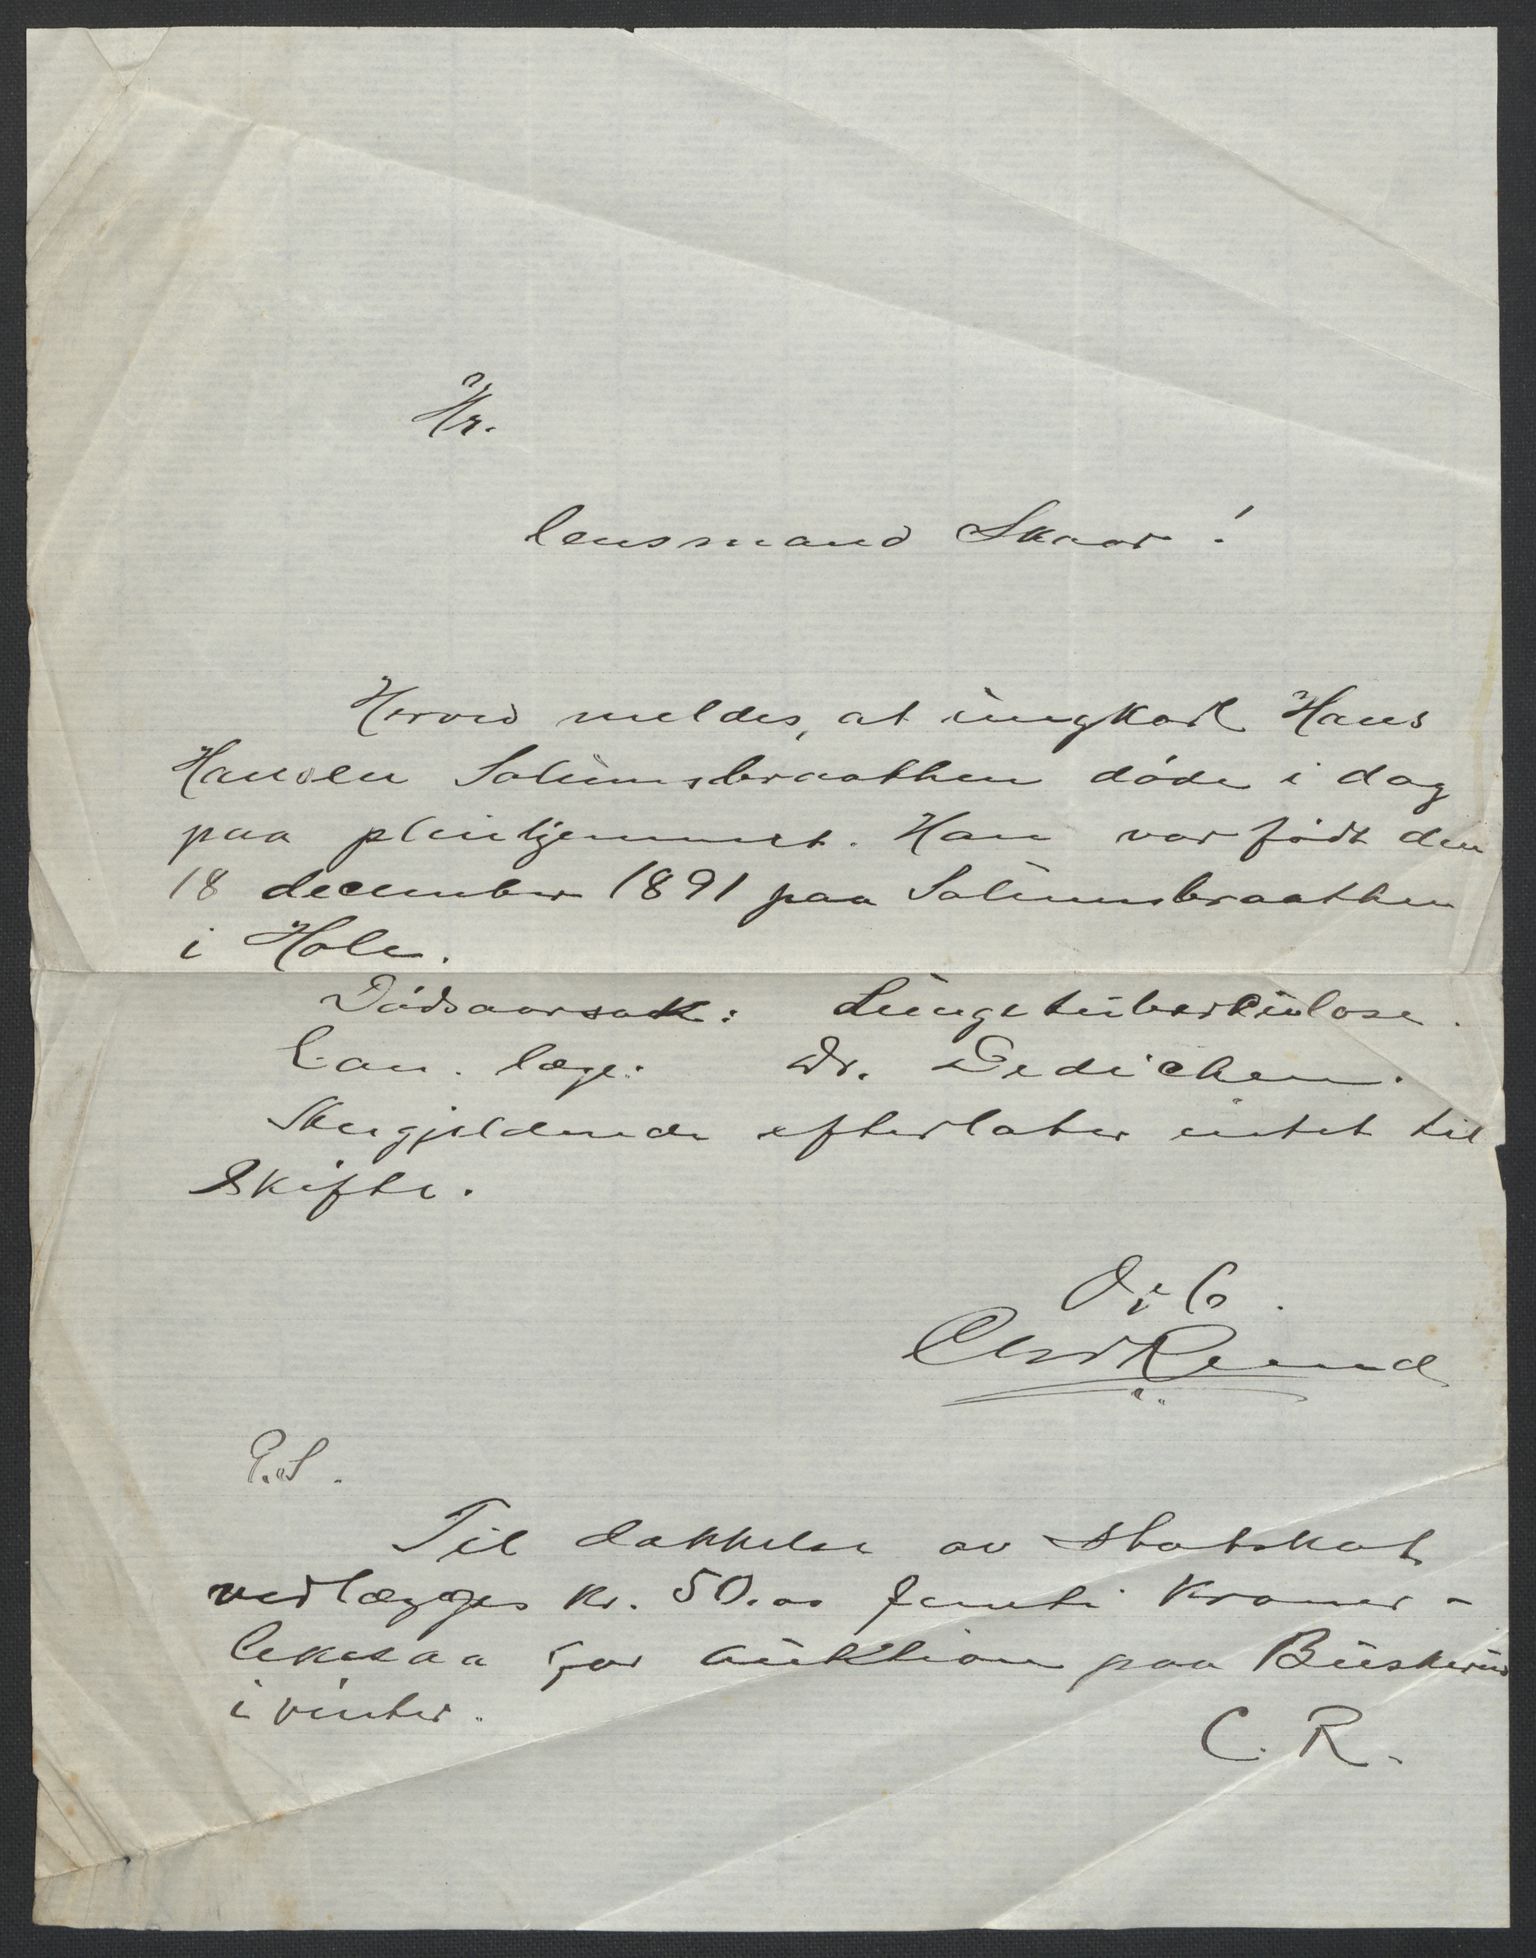 Hr.
lensmand Skaar!
Herved meldes, at ungkarl Hans
Hansen Solumsbraathen døde i dag
paa pleiehjemmet. Han var født den
18 december 1891 paa Solumsbraathen
i Hole.
Dødsaarsak: Lungetuberkulose.
Can. læge: Dr. Dedichen.
Skugjeldende efterlater intet til
skifte.
P.S.
Til dækkelse av statskat
vedlægges kr. 50.00 femti kroner -
likesaa for auktion paa Buskerud
i vinter.
C. R.